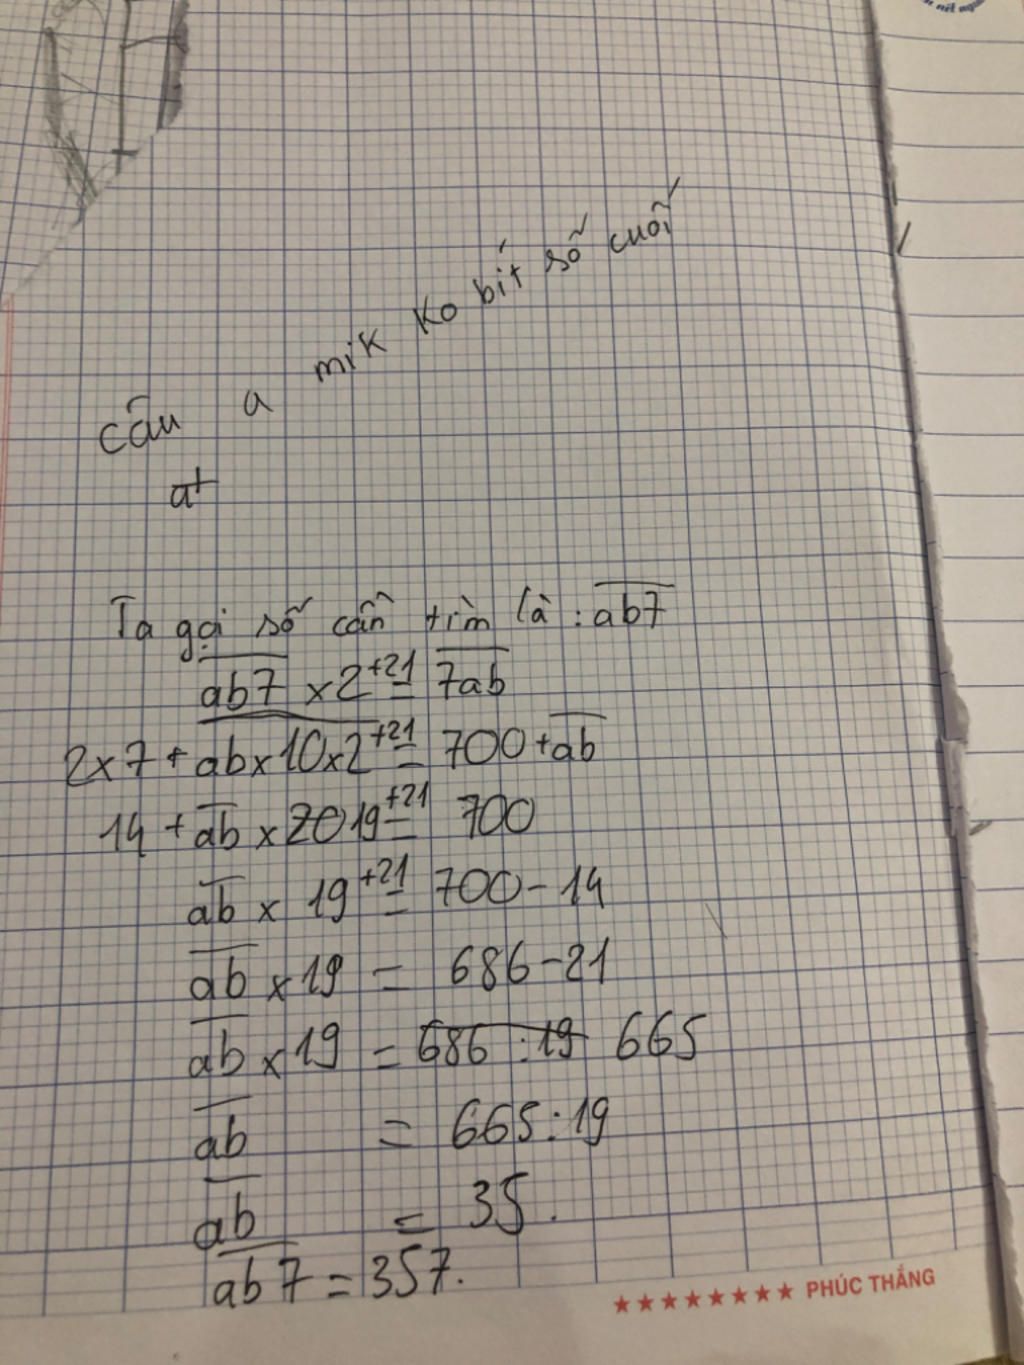 nết ngư
Câu a mik ko bít số cuối
a+
Ta gọi số cần tìm là : ab7
ab7 x 2 +21 = 7ab
2x7 + ab x 10 x 2 +21 = 700 + ab
14 + ab x 20 19 +21 = 700
ab x 19 +21 = 700 - 14
ab x 19 = 686 - 21
ab x 19 = 686 : 19 665
ab = 665 : 19
ab = 35.
ab7 = 357.
★★★★★★★★ PHÚC THẮNG